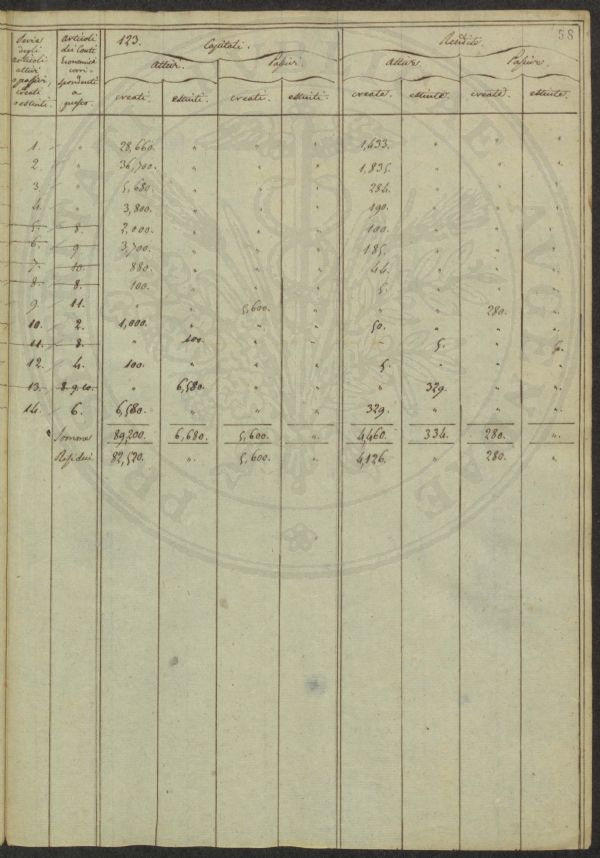 58
Serie degli articoli attivi e passivi, creati e estinti.
articoli dei Conti Economici corrispondenti a questo.
123. Capitali. Rendite.
attivi. Passivi. attive. Passive.
creati. estinti. creati. estinti. create. estinte. create. estinte.
1. " 28,660. " " " 1,433. " " "
2. " 36,700. " " " 1,835. " " "
3. " 5,680. " " " 284. " " "
4. " 3,800. " " " 190. " " "
5. 8. 2,000. " " " 100. " " "
6. 9 3,700. " " " 185. " " "
7. 10. 880. " " " 44. " " "
8. 8. 100. " " " 5. " " "
9. 11. " " 5,600. " " " 280. "
10. 2. 1,000. " " " 50. " " "
11. 8. " 100. " " " 5. "
12. 4. 100. " " " 5. " " "
13. 8. 9. 10. " 6,580. " " " 329. " "
14. 6. 6,580. " " " 329. " " "
Somme 89,200. 6,680. 5,600. " 4,460. 334. 280. "
Residui 82,520. " 5,600. " 4,126. " 280. "